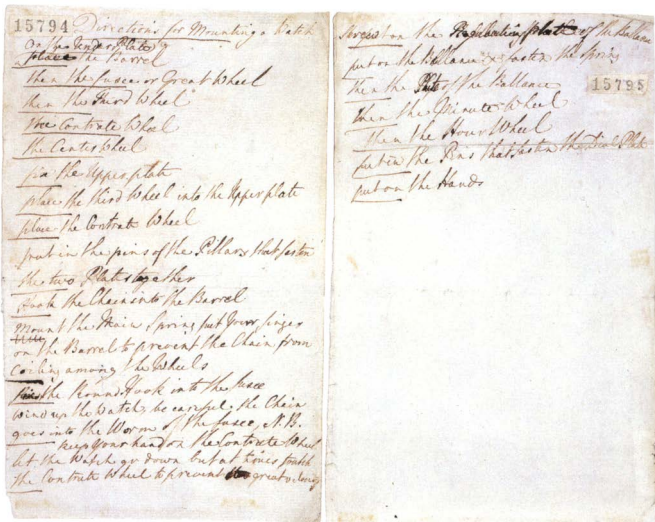 15794 Directions for Mounting a Watch
On the Under Plate
place the Barrel
then the fusee or Great Wheel
then the Third Wheel
the Contrate Wheel
the Center Wheel
fix the Upper plate
place the third Wheel into the Upper plate
place the Contrate Wheel
put in the pins of the Pillars that fasten
the two Plates together
Hook the Chain into the Barrel
Mount the Main Spring put Your finger
on the Barrel to prevent the Chain from
Coiling among the Wheels
the Round Hook into the fusee
wind up the Watch, be careful the Chain
goes into the Worm of the fusee, N.B.
keep your hand on the Contrate Wheel
let the Watch go down but at times touch
the Contrate Wheel to prevent great velocity
screw on the Regulating plate of the Ballance
put on the Ballance & fasten the Spring
then the of the Ballance
15795
then the Minute Wheel
then the Hour Wheel
put in the Pins that fasten the Dial Plate
put on the Hands